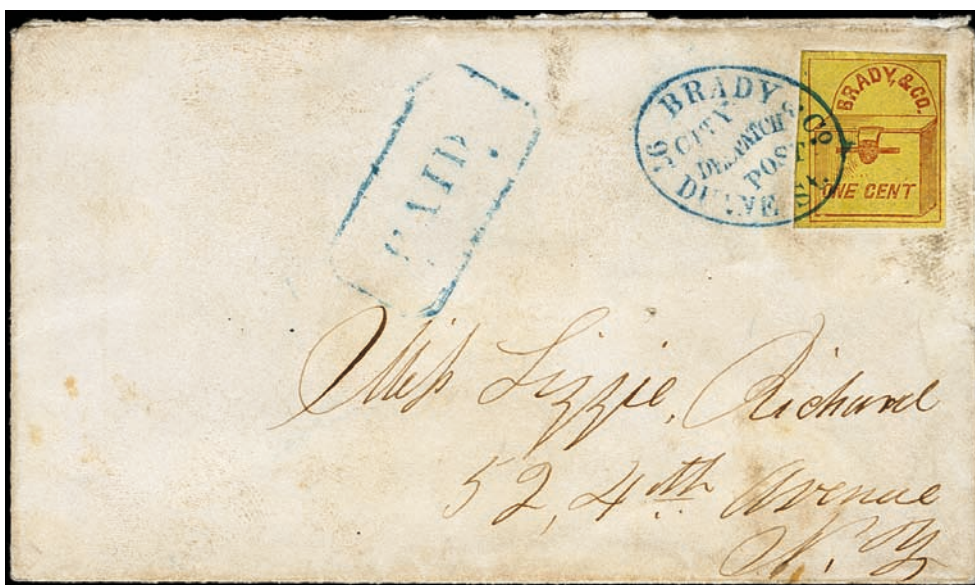 PAID
BRADY & Co.
CITY
DESPATCH
POST
DUANE St.
BRADY, & CO.
ONE CENT
Miss Lizzie, Richard
52, 4th Avenue
N. Y